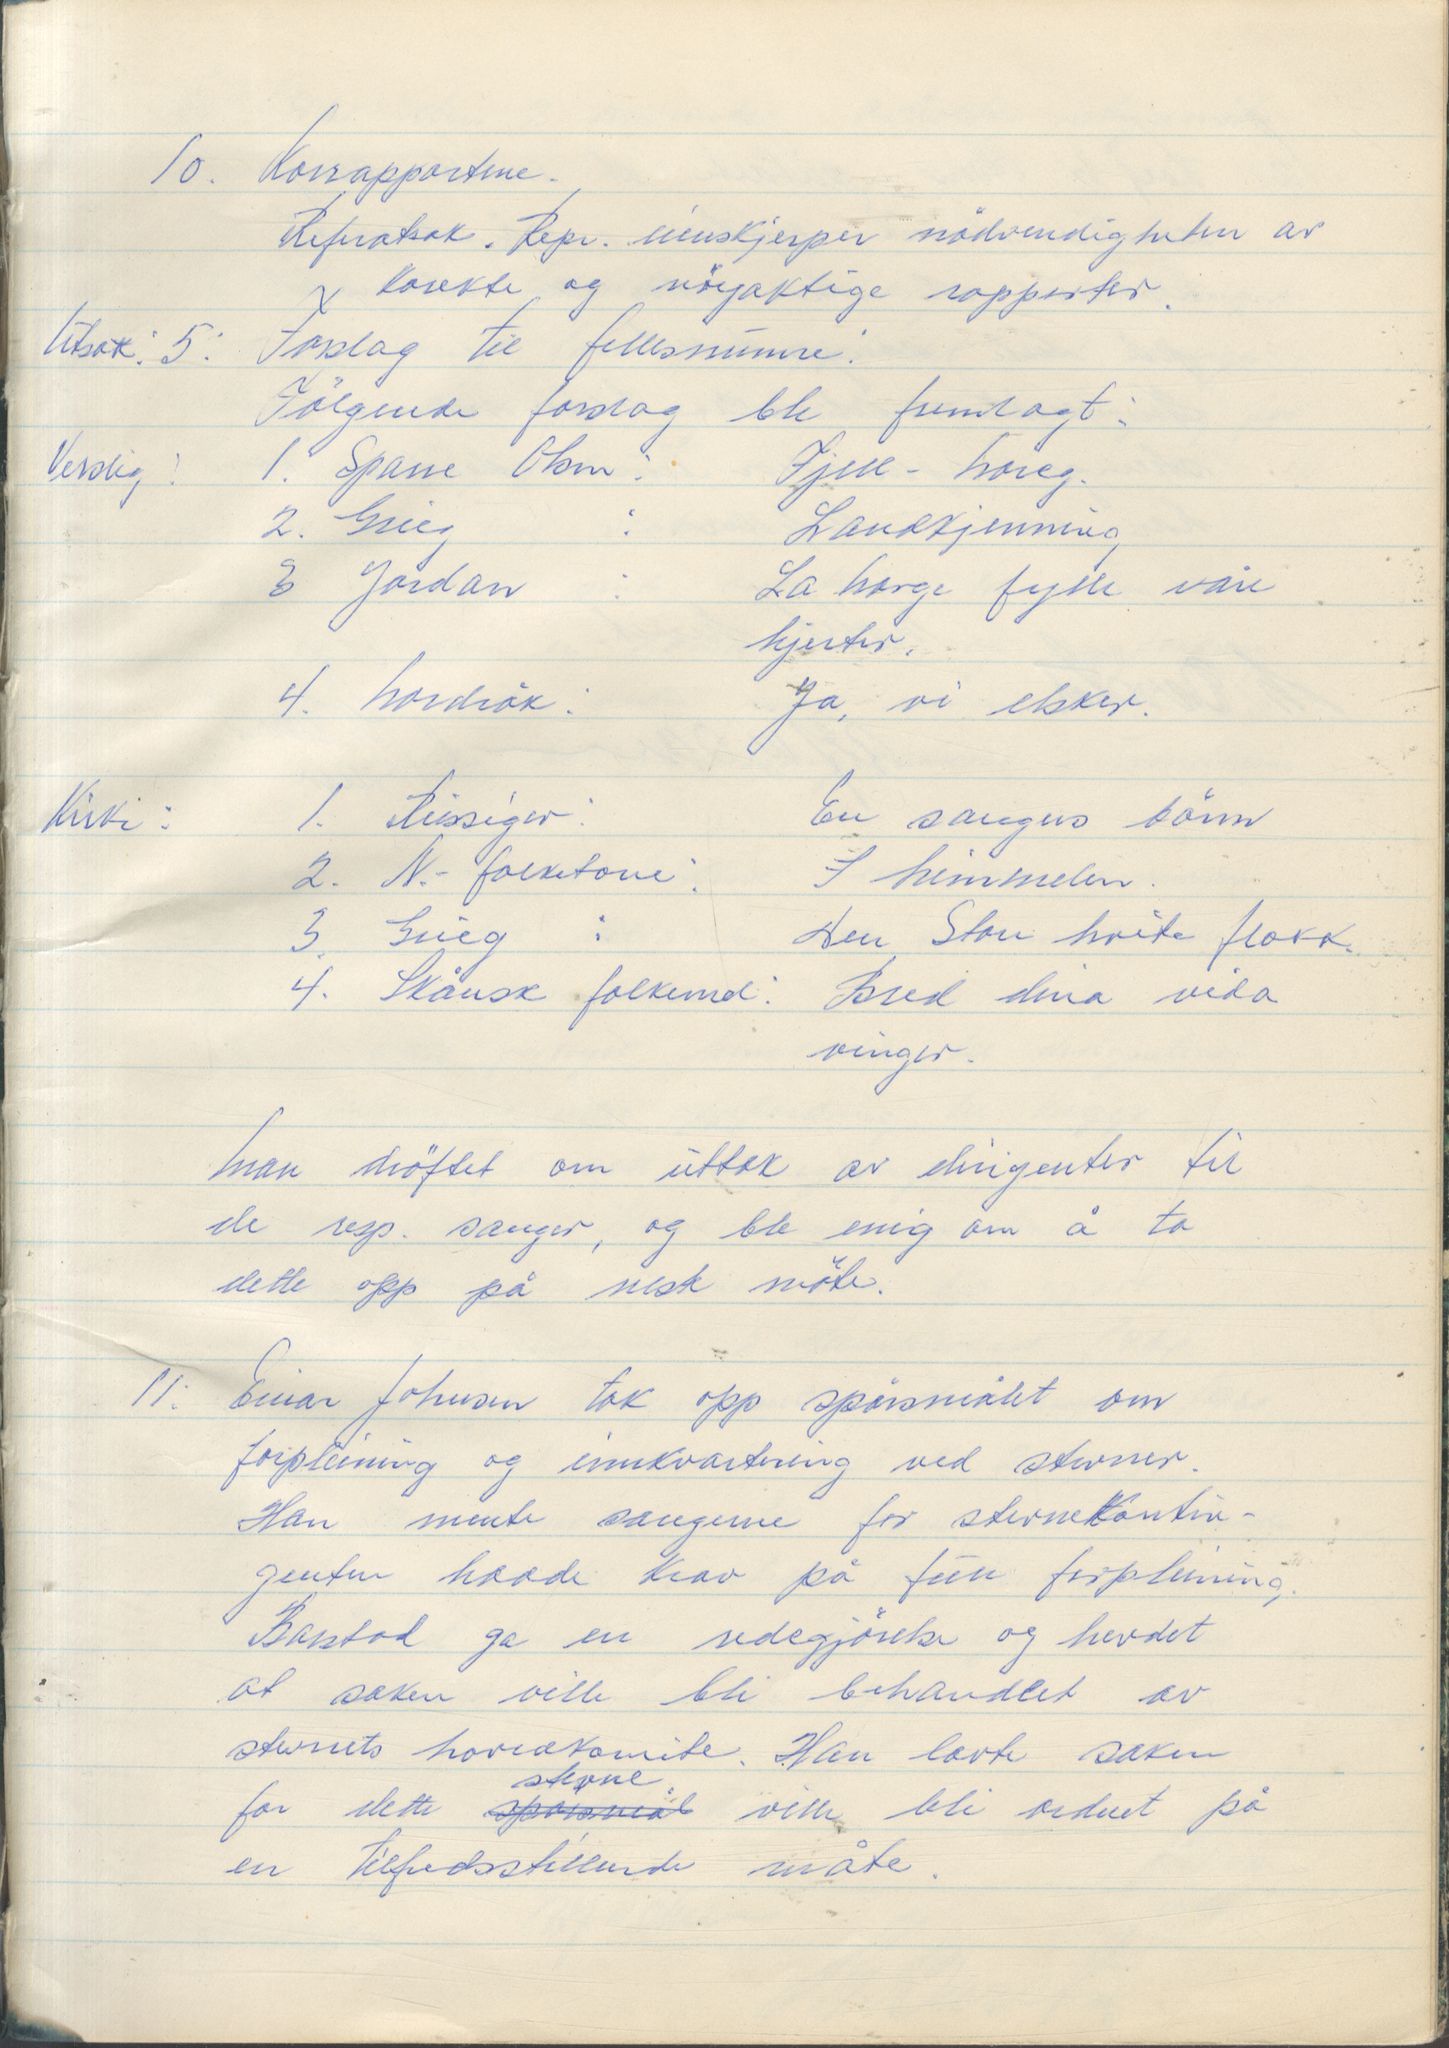 10. Korrapportene.
Referatsak. Repr. innskjerper nödvendigheten av
x korekte og nöyaktige rapporter.
Utsak: 5: Forslag til fellesnumre:
Fölgende forslag ble fremlagt:
Verslig: 1. Sparre Olsen: Fjell-Noreg.
2. Grieg : Landkjenning
3 Jordan : La Norge fylle våre
hjerter.
4. Nordråk: Ja, vi elsker.
Kirke: 1. Reissiger: En sangers bönn
2. N.- folketone: I himmelen.
3. Grieg : Den Store hvite flokk.
4. Skånsk folkemel: Bred dina vida
vinger.
Man dröftet om uttak av dirigenter til
de resp. sanger, og ble enig om å ta
dette opp på neste möte.
11. Einar Johnsen tok opp spörsmålet om
forpleining og innkvartering ved stevner.
Han mente sangerne for stevnekontin-
genten hadde krav på full forpleining.
Barstad ga en redegjörelse og hevdet
at saken ville bli behandlet av
stevnets hovedkomite. Han lovte saken
stevne
for dette spörsmål ville bli ordnet på
en tilfredsstillende måte.